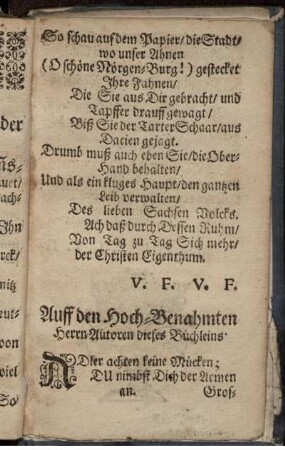 So schau auf dem Papier / die Stadt /
wo unser Ahnen
(O schöne Nörgen-Burg!) gestecket
Ihre Fahnen /
Die Sie aus Dir gebracht / und
Tapffer drauff gewagt /
Biß Sie der Tarter Schaar / aus
Dacien gejagt.
Drumb muß auch eben Sie / die Ober-
Hand behalten /
Und als ein kluges Haupt / den gantzen
Leib verwalten /
Des lieben Sachsen Volcks.
Ach daß durch Dessen Ruhm /
Von Tag zu Tag Sich mehr /
der Christen Eigenthum.
V. F. V. F.
Auff den Hoch-Benahmten
Herrn Autoren dieses Büchleins.
ADler achten keine Mücken;
DU nimbst Dich der Armen
an. Gros-
der
ns-
uet /
ach-
Ihn
rck /
nitz
eut-
von
viel
So